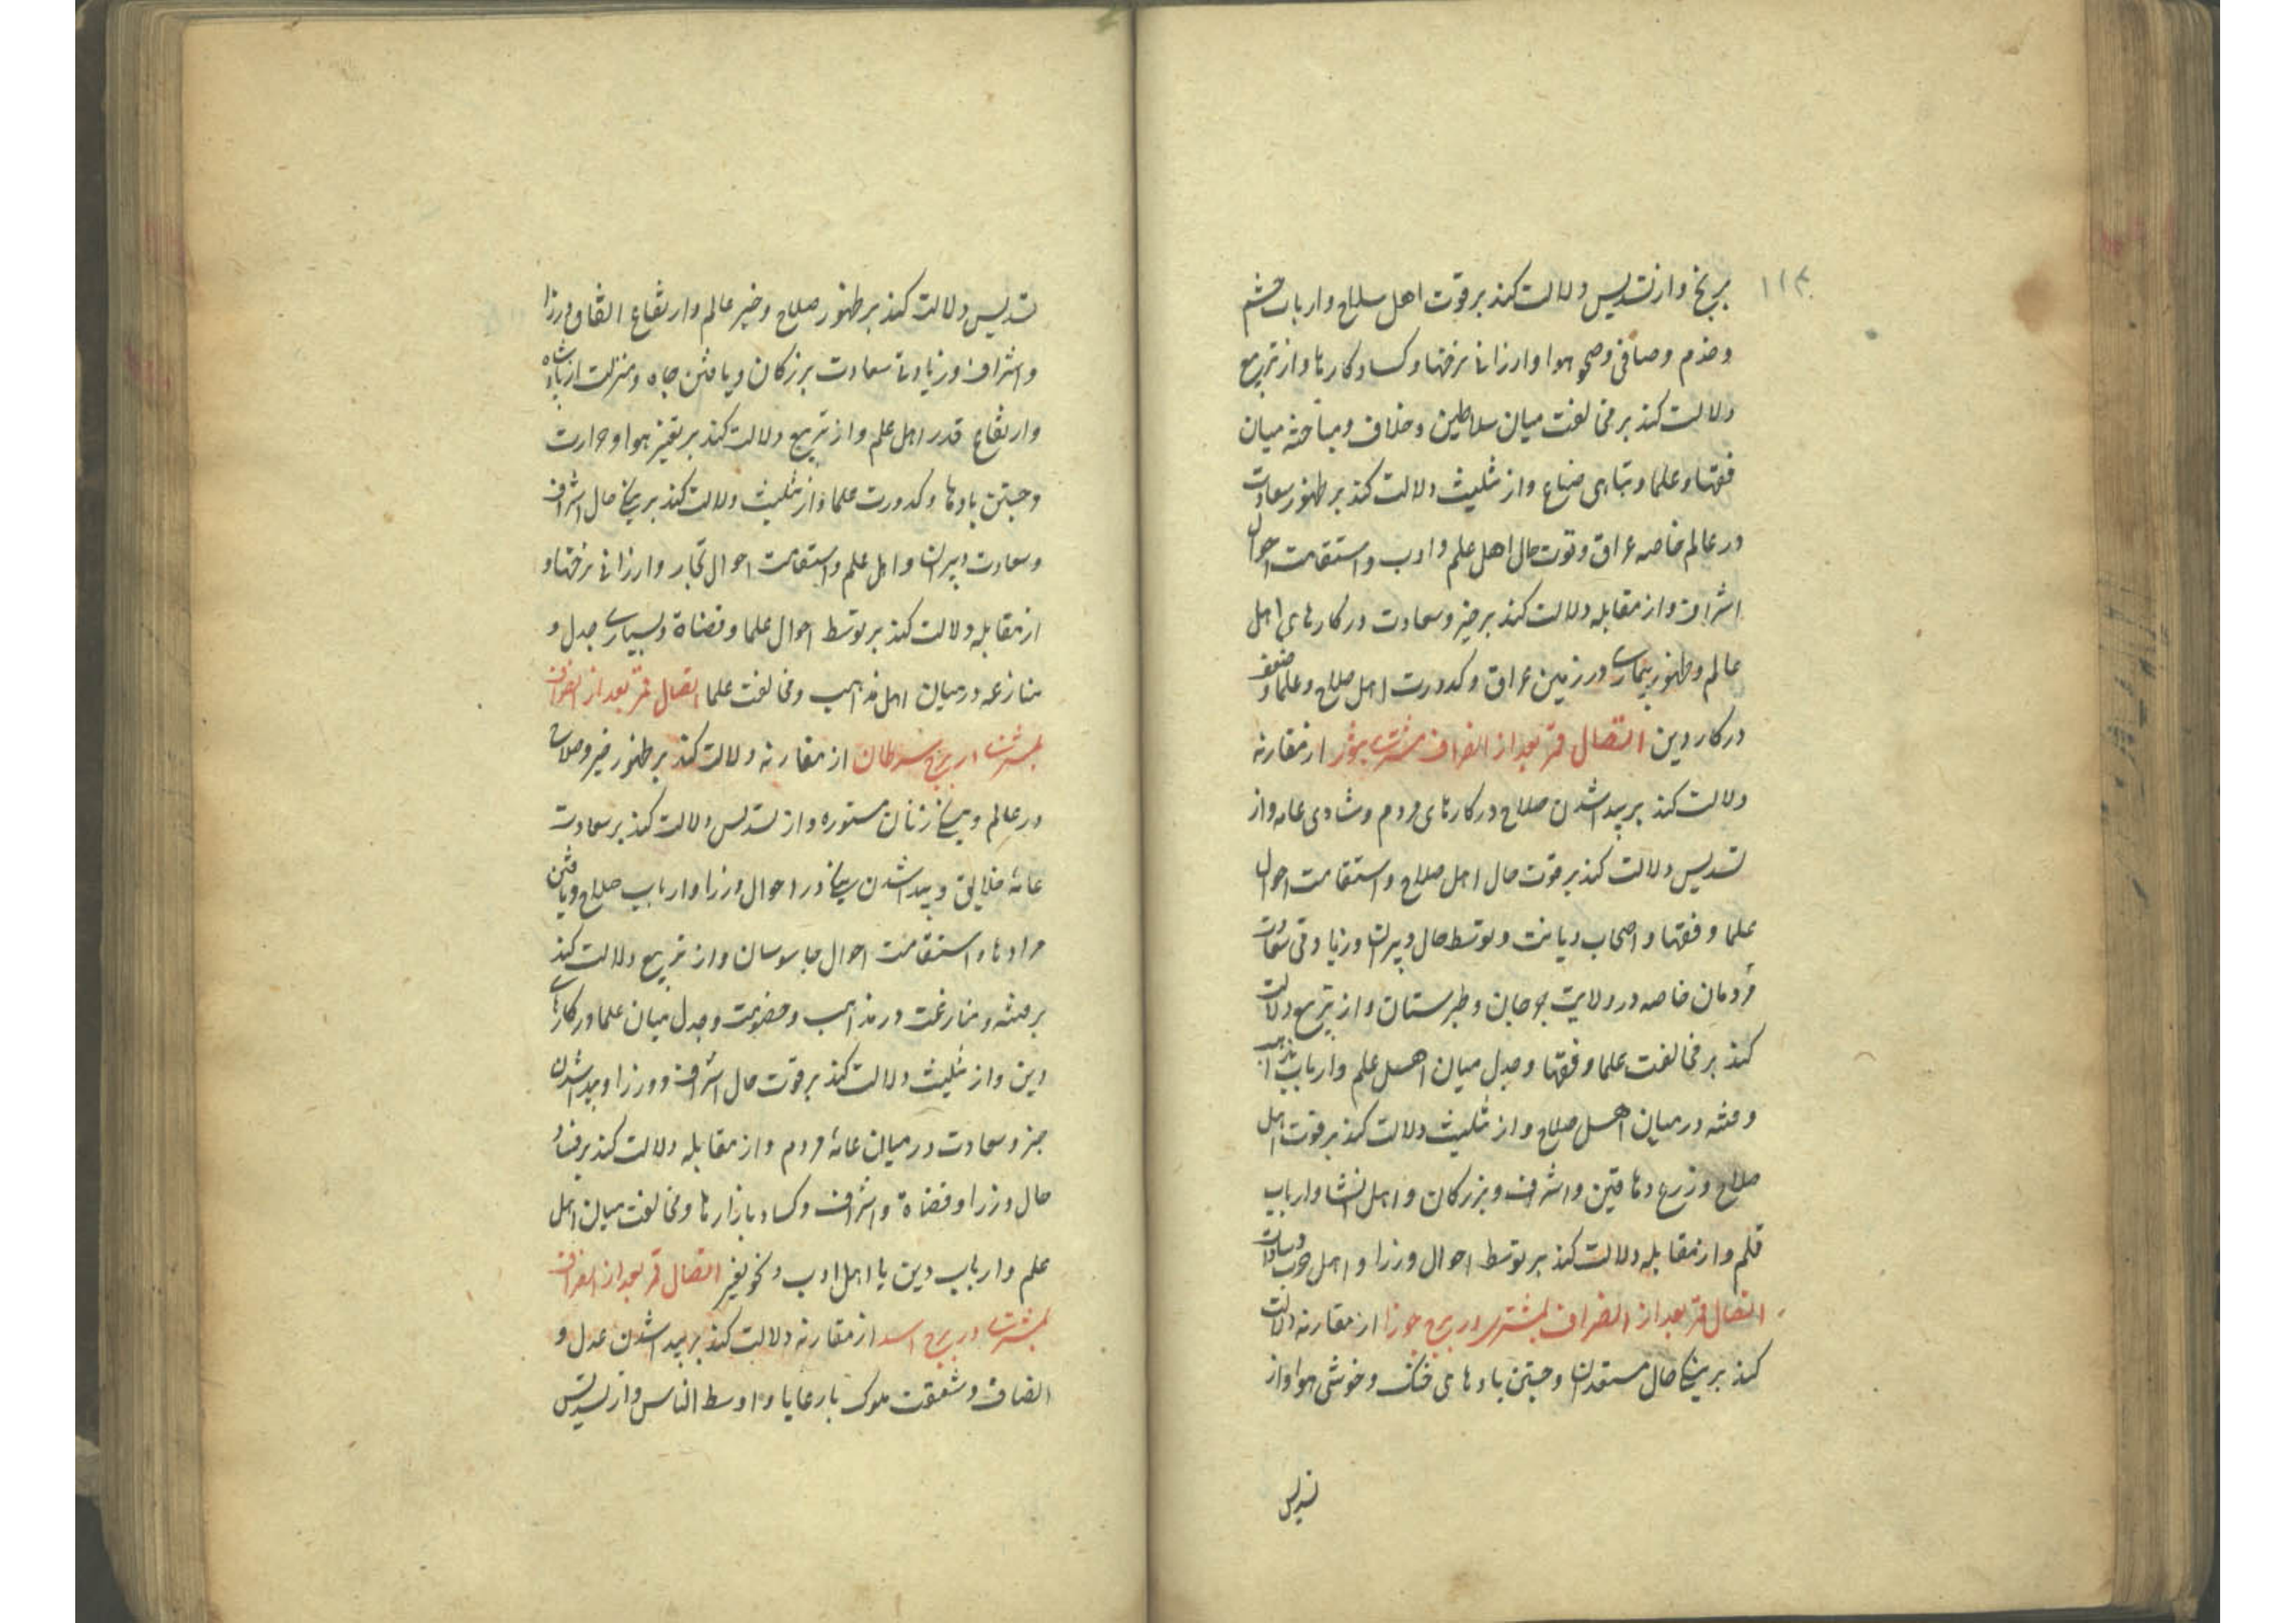 ۱۱۳
بریخ و از تسدیس دلالت کند بر قوت اهل سلاح و ارباب حشم
و خدم و صافی و صحو هوا و ارزانی نرخها و کساد کارها و از تربیع
دلالت کند بر مخالفت میان سلاطین و خلاف و مباحثه میان
فقها و علما و تباهی ضیاع و از تثلیث دلالت کند بر ظهور سعادت
در عالم خاصه عراق و قوت حال اهل علم و ادب و استقامت احوال
اشراف و از مقابله دلالت کند بر خیر و سعادت در کارهای اهل
عالم و ظهور بیماری در زمین عراق و کدورت اهل صلاح و علما و ضعف
در کار دین اتصال قمر بعد از انصراف مشتری بثور از مقارنه
دلالت کند بر پیدا شدن صلاح در کارهای مردم و شادی عامه و از
تسدیس دلالت کند بر قوت حال اهل صلاح و استقامت احوال
علما و فقها و اصحاب دیانت و توسط حال دبیران و زیادتی سعادت
مردمان خاصه در ولایت جرجان و طبرستان و از تربیع دلالت
کند بر مخالفت علما و فقها و جدل میان اهل علم و ارباب مذاهب
و فتنه در میان اهل صلاح و از تثلیث دلالت کند بر قوت اهل
صلاح و زرع دهاقین و اشراف و بزرکان و اهل انشا و ارباب
قلم و از مقابله دلالت کند بر توسط احوال وزرا و اهل حرب و سادات
اتصال قمر بعد از انصراف بمشتری در برج جوزا از مقارنه دلالت
کند بر نیکی حال مستعدان و جستن بادهای خنک و خوشی هوا و از
تسدیس
تسدیس دلالت کند بر ظهور صلاح و خیر عالم و ارتفاع اتفاق وزرا
و اشراف و زیادتی سعادت بزرکان و یافتن جاه و منزلت از پادشاه
و ارتفاع قدر اهل علم و از تربیع دلالت کند بر تغیر هوا و حرارت
و جستن بادها و کدورت علما و از تثلیث دلالت کند بر نیکی حال اشراف
و سعادت دبیران و اهل علم و استقامت احوال تجار و ارزانی نرخها و
از مقابله دلالت کند بر توسط احوال علما و قضاة و بسیاری جدل و
منازعه در میان اهل مذاهب و مخالفت علما اتصال قمر بعد از انصراف
بمشتری در برج سرطان از مقارنه دلالت کند بر ظهور خیر و صلاح
در عالم و نیکی زنان مستوره و از تسدیس دلالت کند بر سعادت
عامهٔ خلایق و پیدا شدن نیکی در احوال وزرا و ارباب صلاح و یافتن
مرادها و استقامت احوال جاسوسان و از تربیع دلالت کند
بر فتنه و منازعت در مذاهب و خصومت و جدل میان علما در کارهای
دین و از تثلیث دلالت کند بر قوت حال اشراف و وزرا و پیدا شدن
خیر و سعادت در میان عامهٔ مردم و از مقابله دلالت کند بر فساد
حال وزرا و قضاة و اشراف و کساد بازارها و مخالفت میان اهل
علم و ارباب دین با اهل ادب و نحو اتصال قمر بعد از انصراف
بمشتری در برج اسد از مقارنه دلالت کند بر پیدا شدن عدل و
انصاف و شفقت ملوک بارعایا و اوسط الناس و از تسدیس